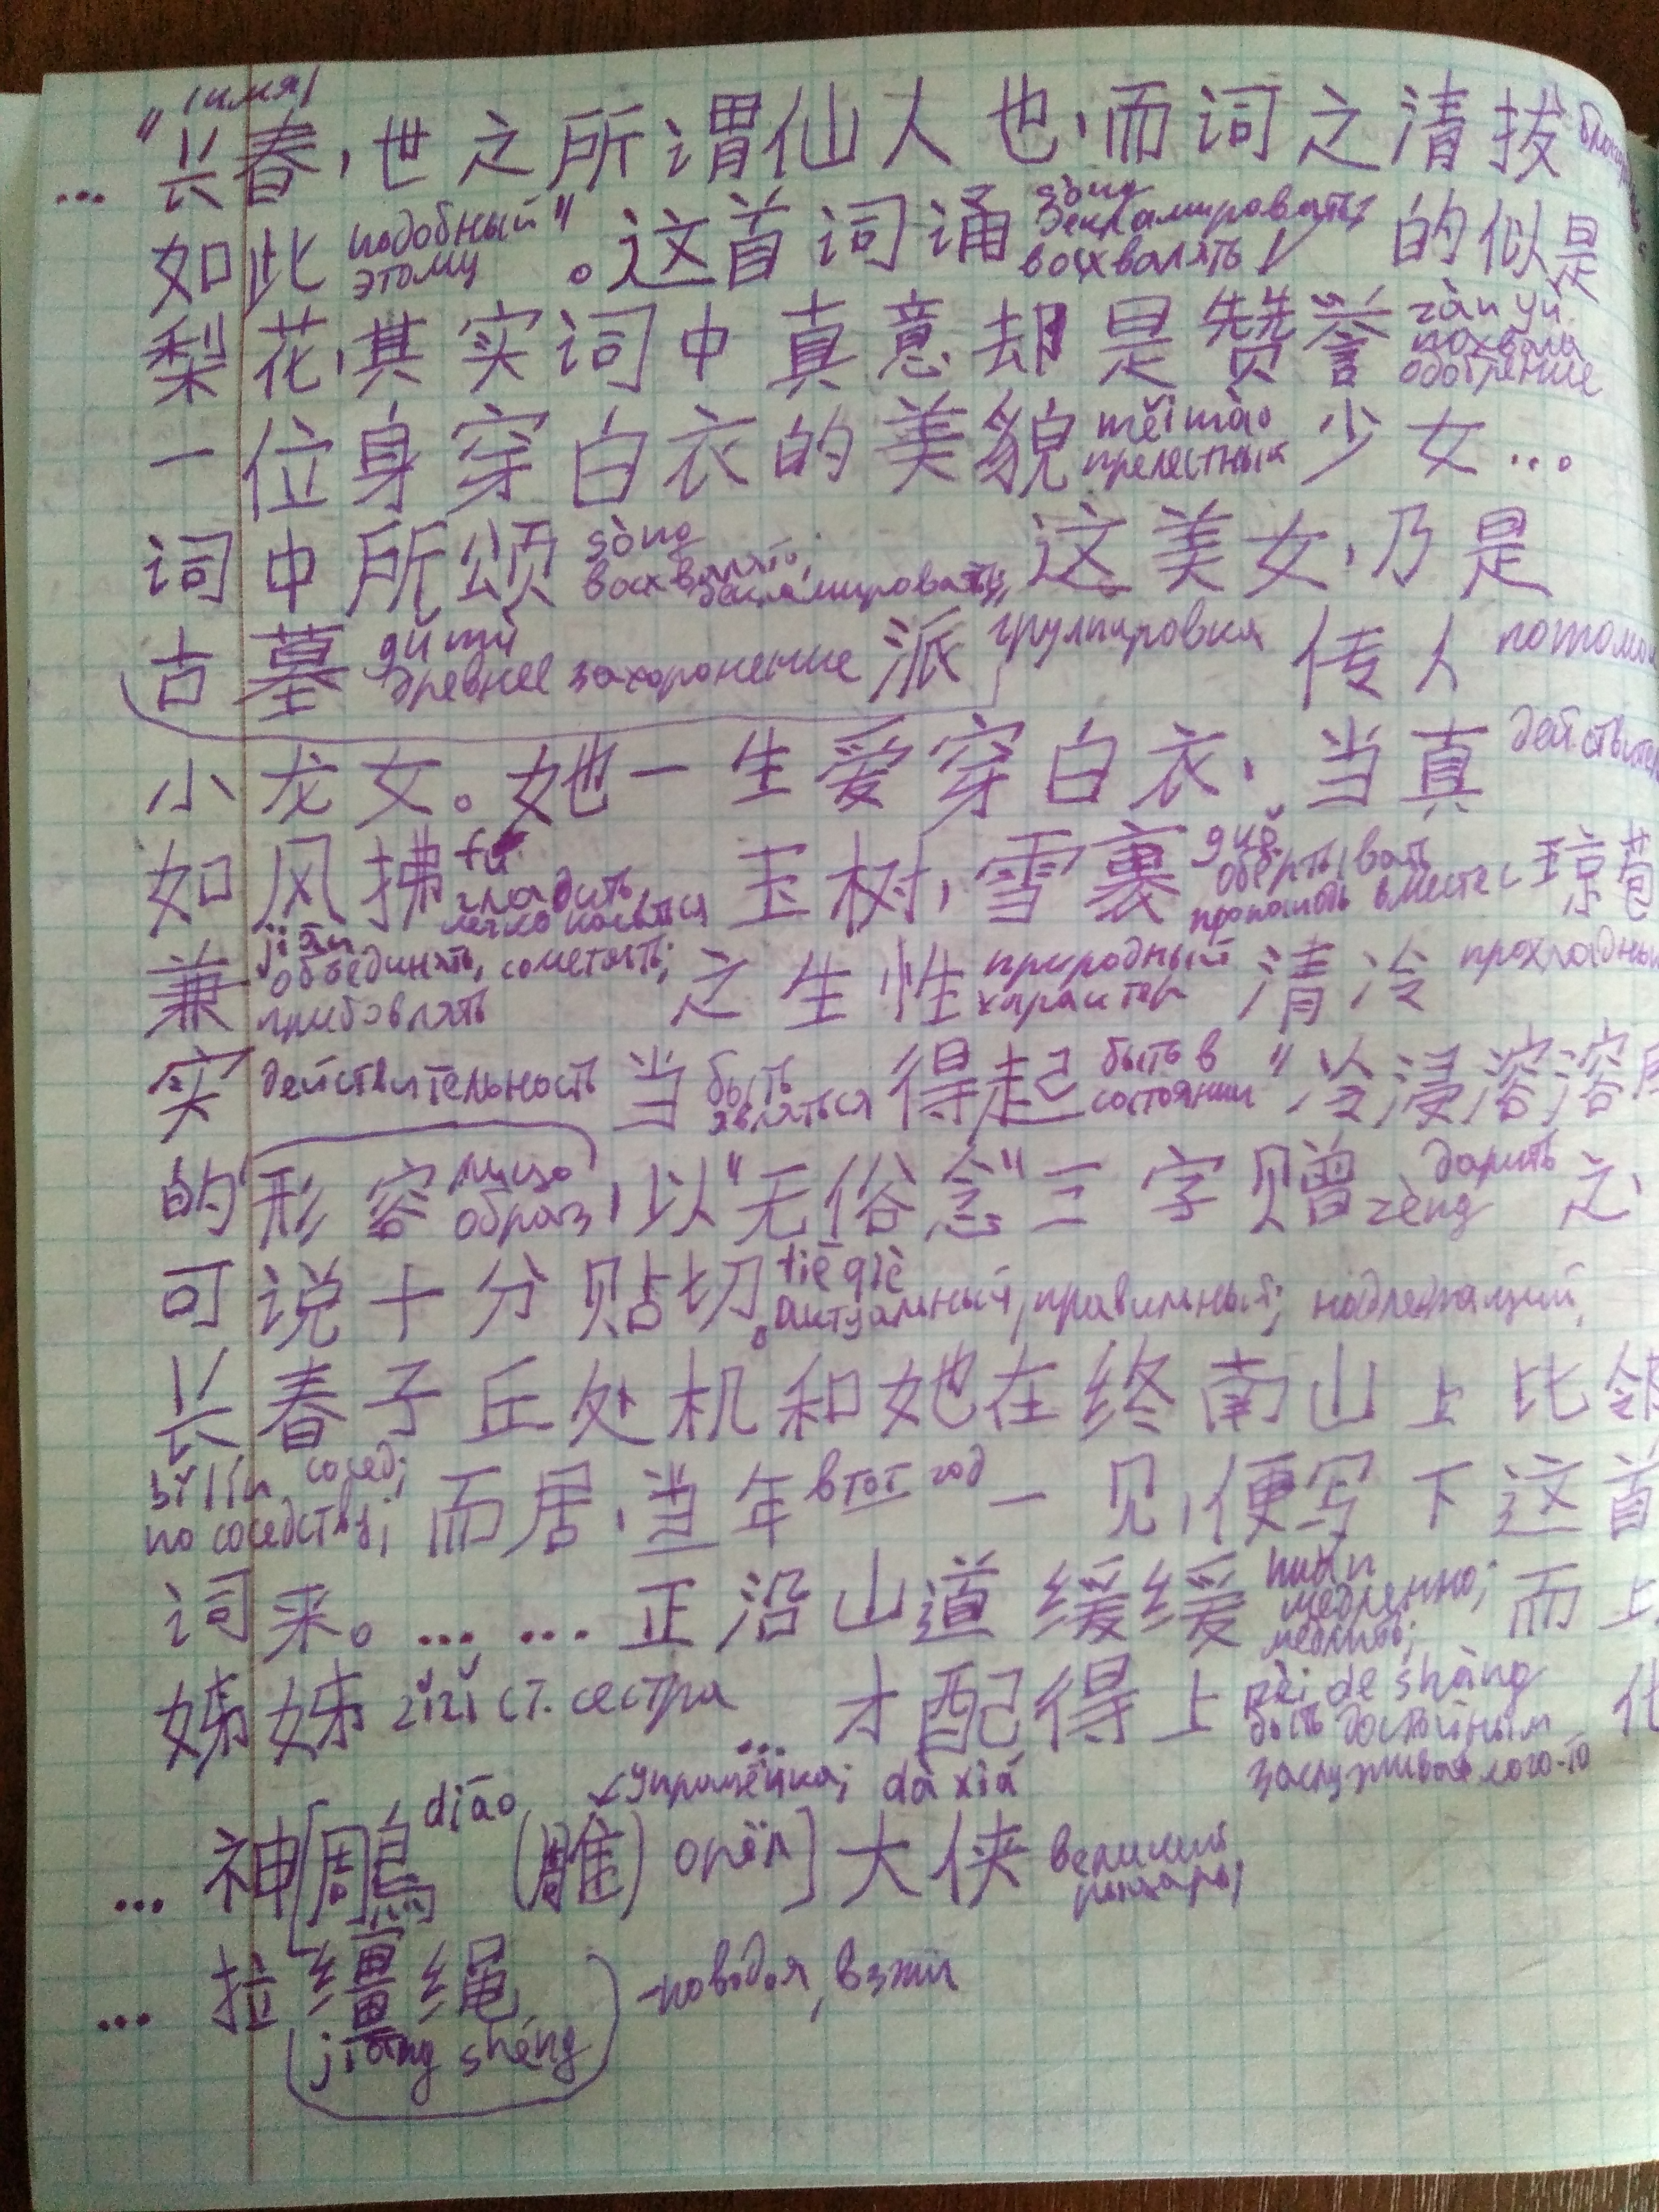 (имя)
... "长春,世之所谓仙人也,而词之清拔
如此 подобный этому"。这首词诵 sòng декламировать; восхвалять 的似是
梨花,其实词中真意却是赞誉 zàn yù похвала одобрение
一位身穿白衣的美貌 měi mào прелестный 少女...
词中所颂 sòng восхвалять; декламировать; 这美女,乃是
古墓 gǔ mù древнее захоронение 派 группировка 传人
小龙女。她一生爱穿白衣,当真
如风拂 fú гладить, легко касаться 玉树,雪裹 guǒ обёртывать 琼苞
兼 jiān объединять, сочетать; прибавлять 之生性 природный характер 清冷
实 действительность 当 быть являться 得起 быть в состоянии "冷浸溶溶
的形容 лицо образ, 以"无俗念"三字赠 zèng дарить 之,
可说十分贴切。 tiē qiè актуальный, правильный; надлежащий,
长春子丘处机和她在终南山上比邻
bǐ lín сосед; по соседству; 而居,当年 в тот год 一见,便写下这首
词来。... ... 正沿山道缓缓 huǎn медленно; медлить; 而上
姊姊 zǐzǐ ст. сестра ... 才配得上 pèi de shàng быть достойным заслуживать кого-то
diāo упрощёнка; dà xiá
... 神[鵰 (雕) орёл] 大侠 великий рыцарь;
... 拉缰绳 - поводья, вожжи
(jiāng shéng)